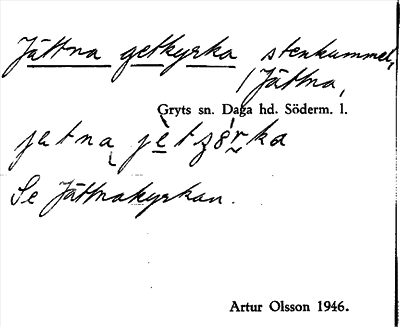 Jättna getkyrka stenkummel,
Jättna,
Gryts sn. Daga hd. Söderm. l.
Se Jättnakyrkan.
Artur Olsson 1946.